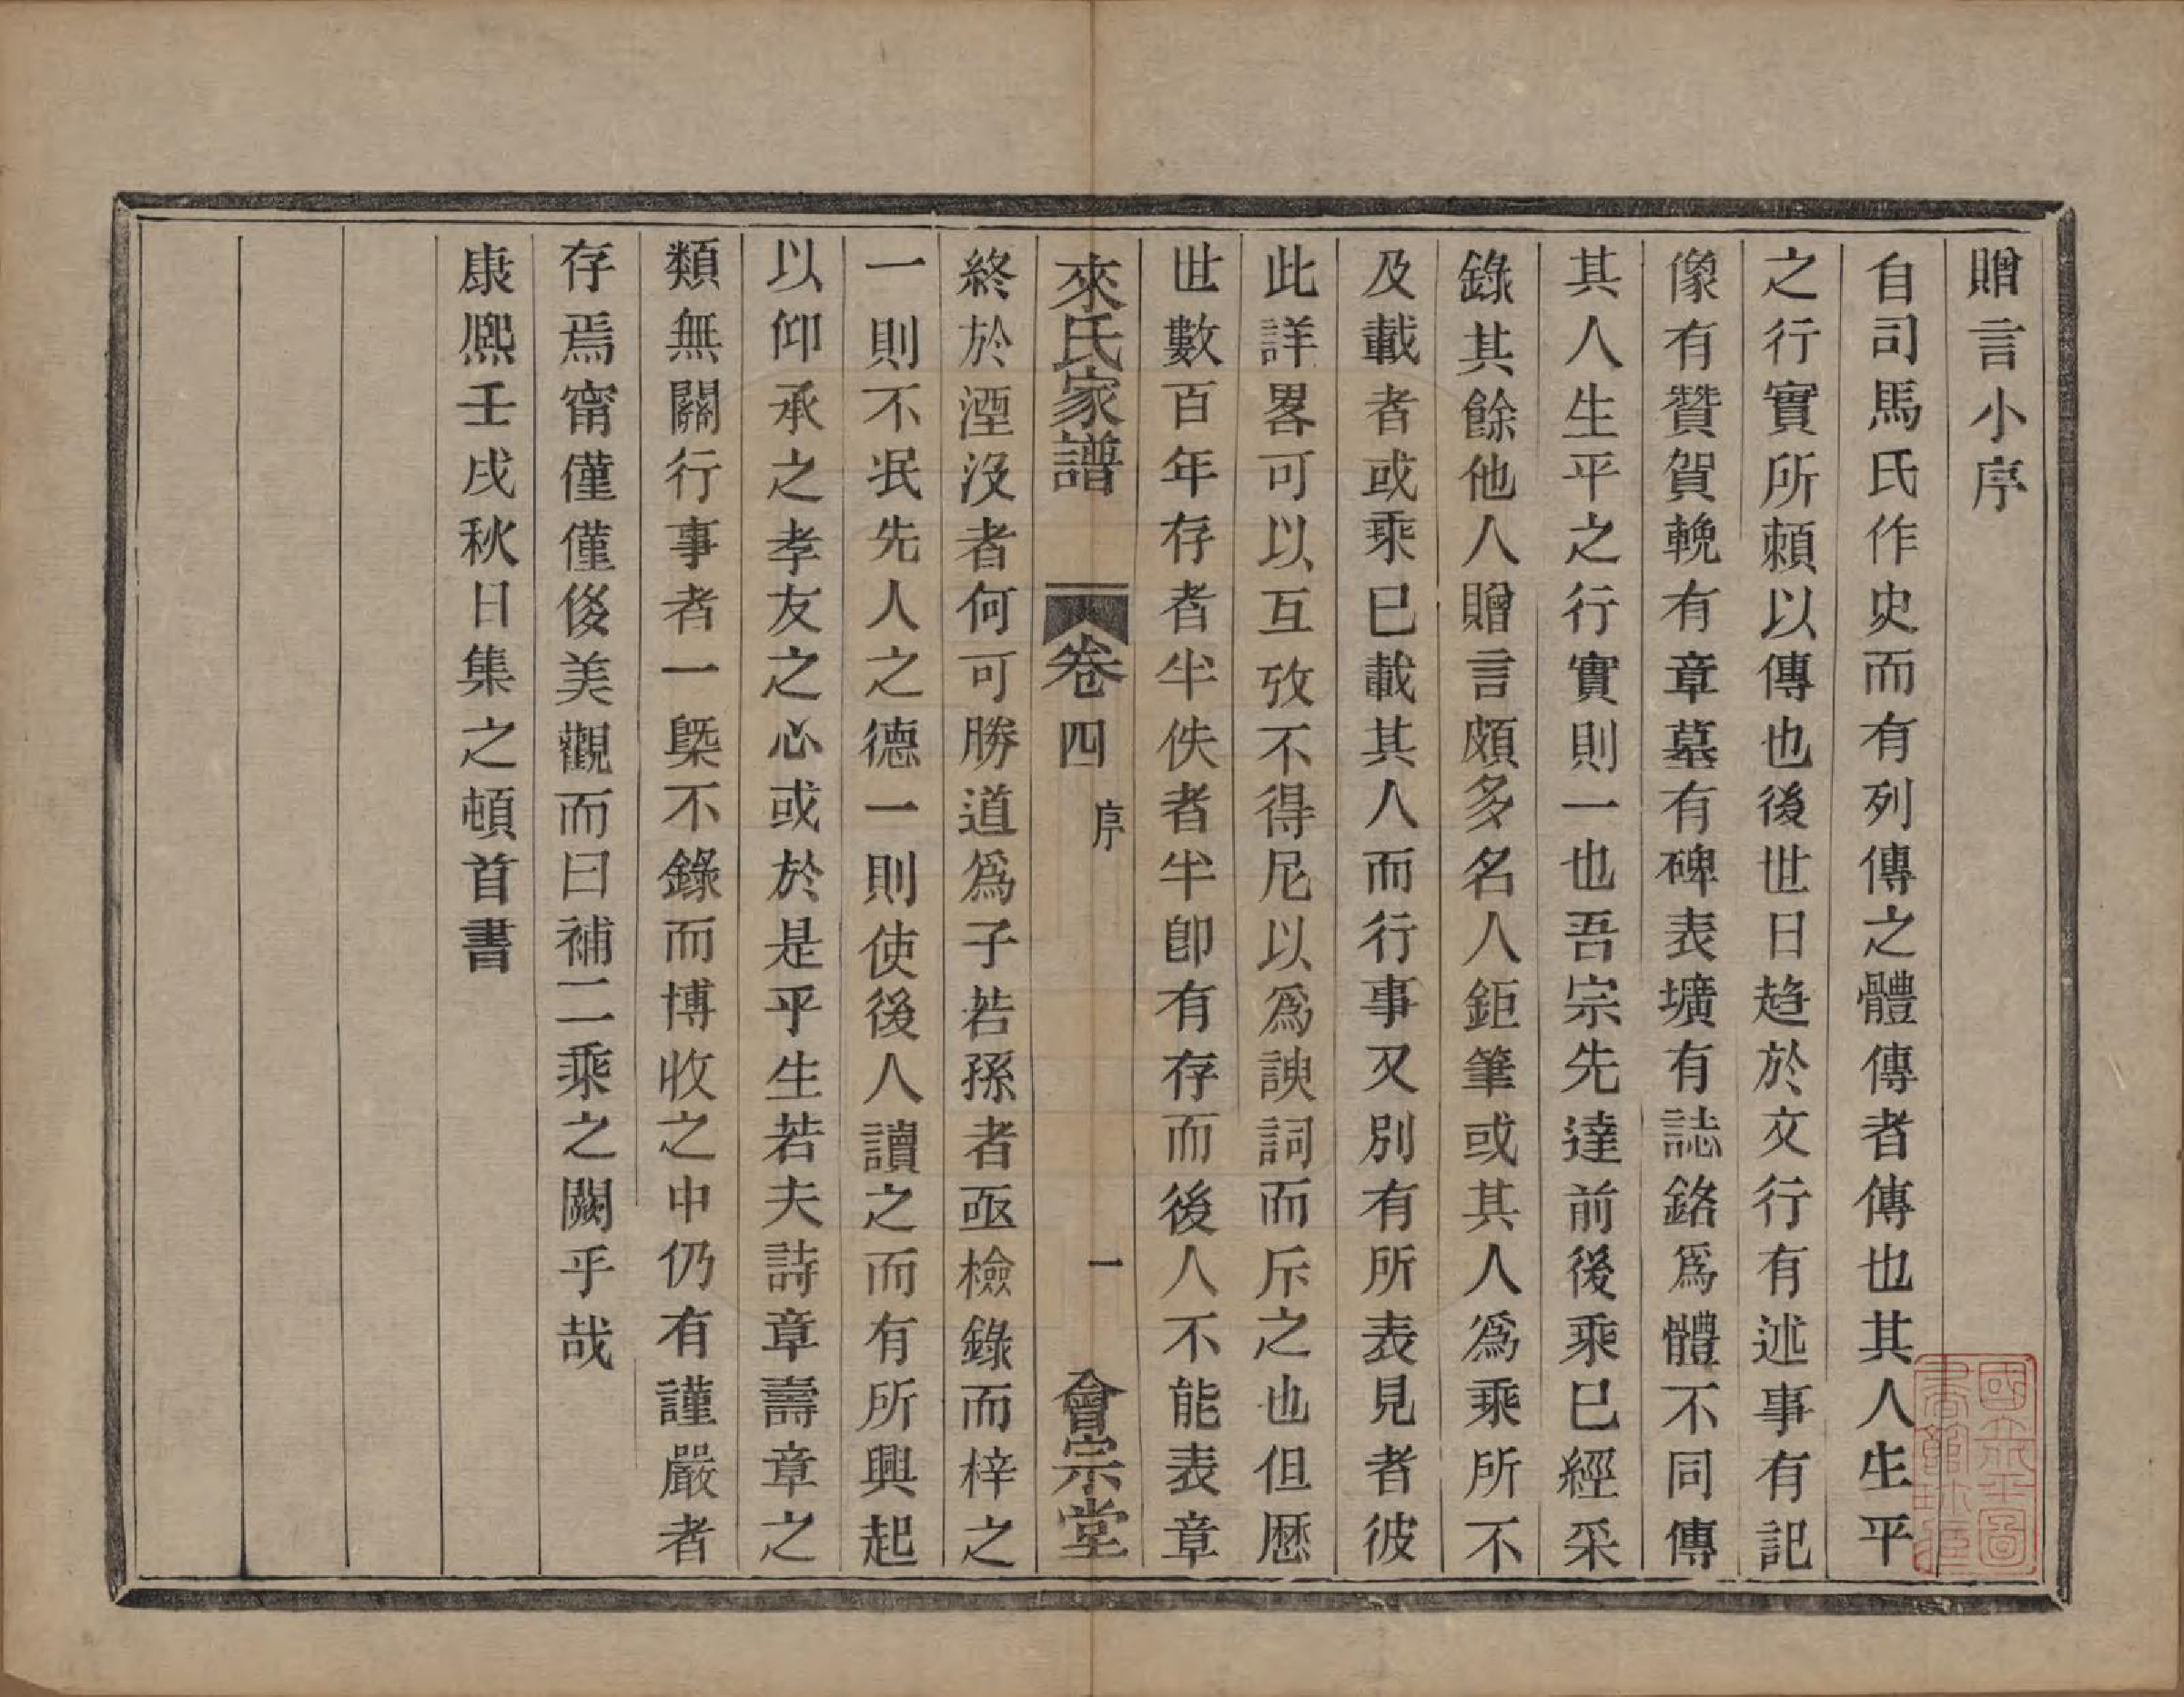 贈言小序
自司馬氏作史而有列傳之體傳者傳也其人生平
之行實所頼以傳也後世日趋於文行有述事有記
像有贊賀輓有章墓有碑表壙有誌銘爲體不同傳
其人生平之行實則一也吾宗先達前後乘已經采
錄其餘他人贈言頗多名人鉅筆或其人爲乘所不
及載者或乘已載其人而行事又別有所表見者彼
此詳畧可以互攷不得尼以爲諛詞而斥之也但歷
世數百年存者半佚者半卽有存而後人不能表章
來氏家譜 卷四 序 一 會宗堂
終於湮沒者何可勝道爲子若孫者亟檢錄而梓之
一則不泯先人之德一則使後人讀之而有所興起
以仰承之孝友之心或於是乎生若夫詩章壽章之
類無關行事者一槩不錄而博收之中仍有謹嚴者
存焉甯僅僅俊美觀而曰補二乘之闕乎哉
康熙壬戌秋日集之頓首書
國立北平圖書館珍藏